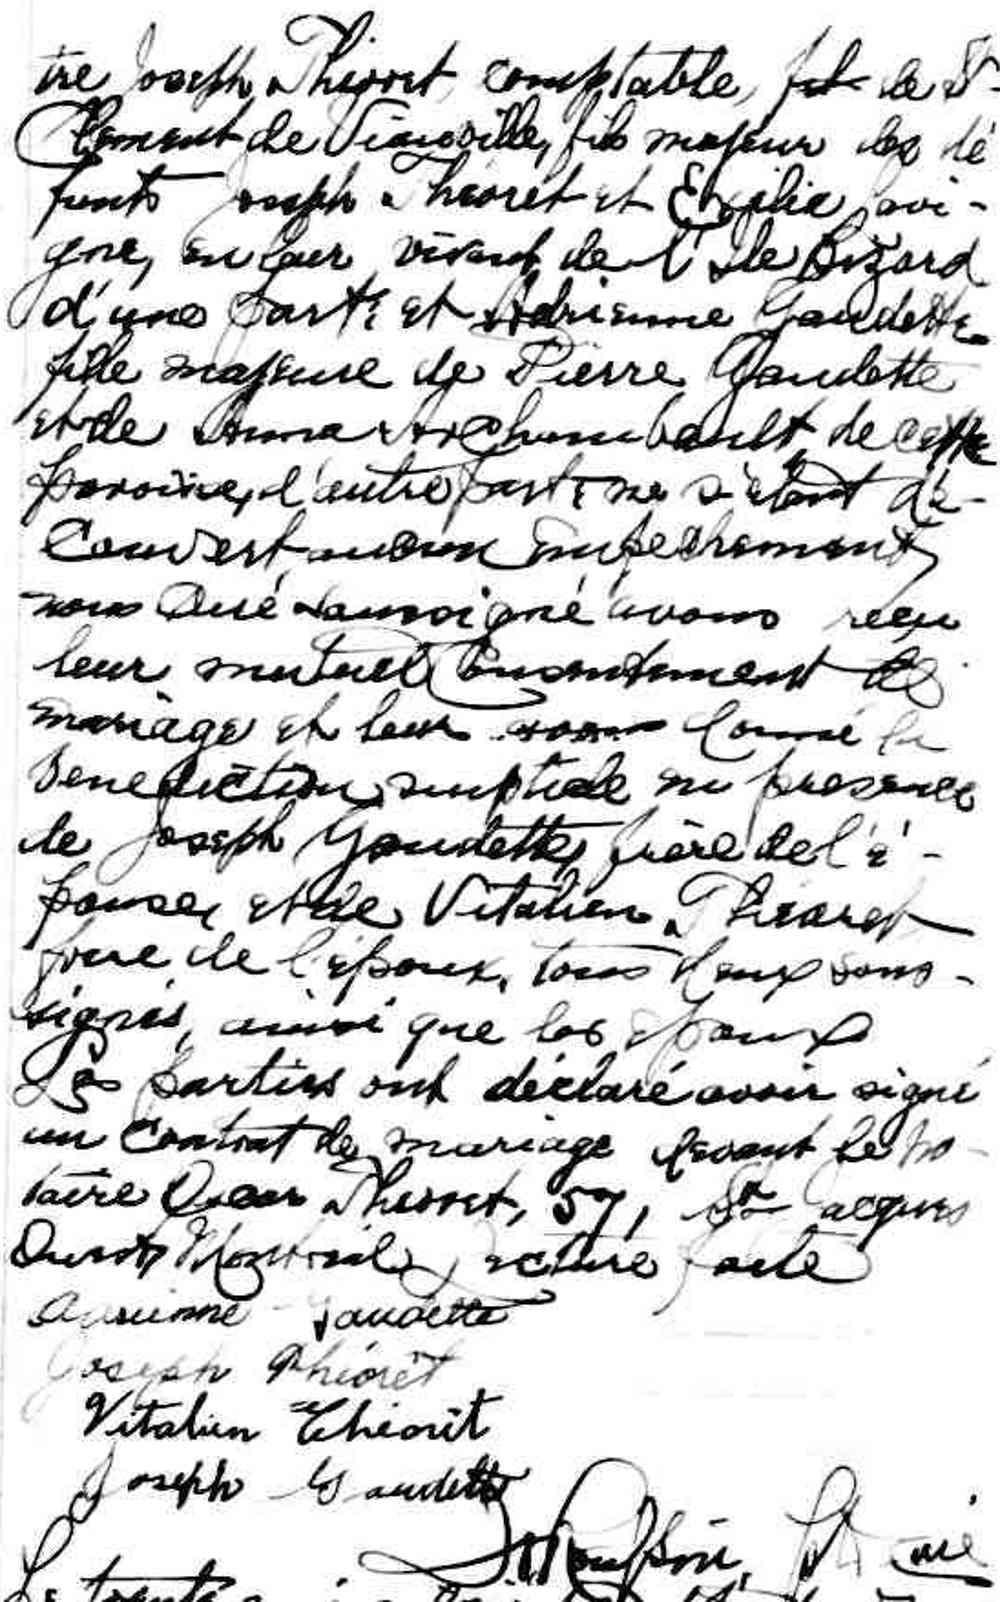 tre Joseph Théoret, comptable, de St-
Clément de Viauville, fils majeur des dé
funts Joseph Théoret et Exilie Lavi-
gne, en leur vivant de l'Isle Bizard
d'une part; et Adrienne Gaudette
fille majeure de Pierre Gaudette
et de Anna Archambault de cette
paroisse, d'autre part; ne s'étant dé-
couvert aucun empêchement,
nous Curé soussigné avons reçu
leur mutuel consentement de
mariage et leur avons donné la
bénédiction nuptiale en présence
de Joseph Gaudette, frère de l'é-
pouse, et de Vitalien Théoret
frère de l'époux, tous deux sous-
signés, ainsi que les époux
Les parties ont déclaré avoir signé
un contrat de mariage devant le no-
taire Oscar Théoret, 57, St Jacques
Ouest, Montréal Lecture faite
Adrienne Gaudette
Joseph Théorêt
Vitalien Théorêt
Joseph Gaudette
curé
Le trente